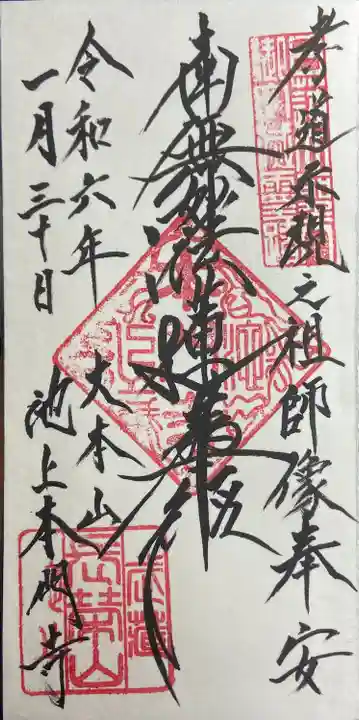 孝道示現元祖師像奉安
南無妙法蓮華経
令和六年
一月三十日
大本山
池上本門寺
長榮山